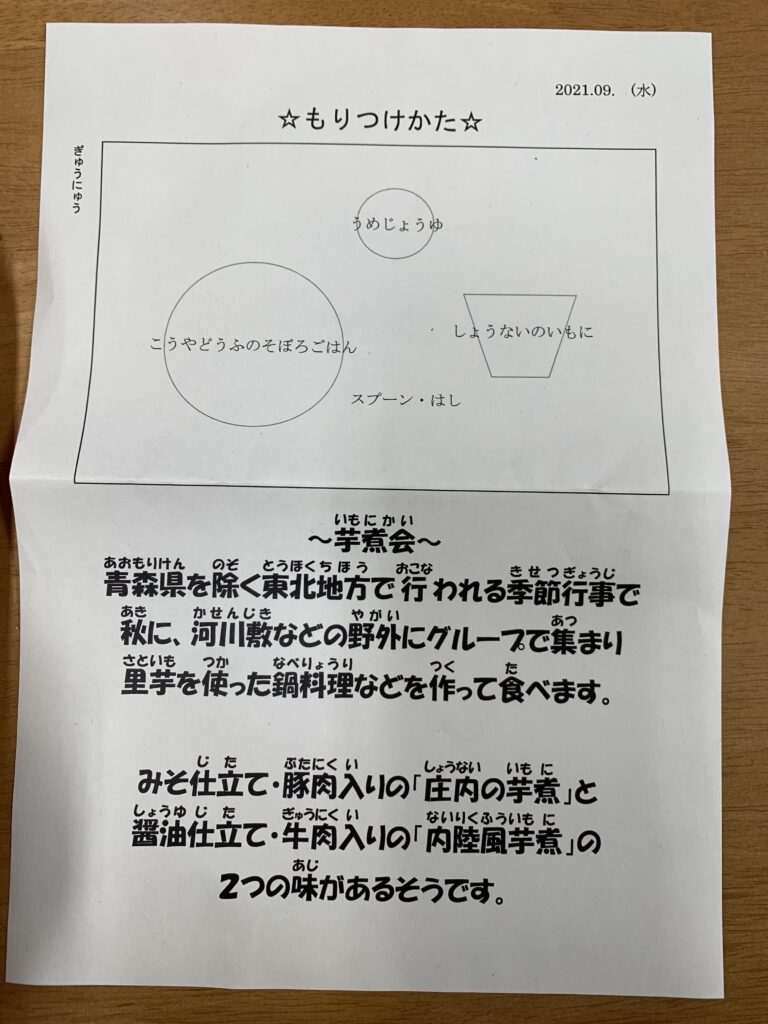 2021.09. (水)
☆もりつけかた☆
ぎゅうにゅう
うめじょうゆ
しょうないのいもに
こうやどうふのそぼろごはん
スプーン・はし
いもにかい
～芋煮会～
あおもりけん のぞ とうほくちほう おこな きせつぎょうじ
青森県を除く東北地方で行われる季節行事で
あき かせんじき やがい あつ
秋に、河川敷などの野外にグループで集まり
さといも つか なべりょうり つく た
里芋を使った鍋料理などを作って食べます。
じた ぶたにくい しょうない いもに
みそ仕立て・豚肉入りの「庄内の芋煮」と
しょうゆじた ぎゅうにくい ないりくふういもに
醤油仕立て・牛肉入りの「内陸風芋煮」の
あじ
2つの味があるそうです。